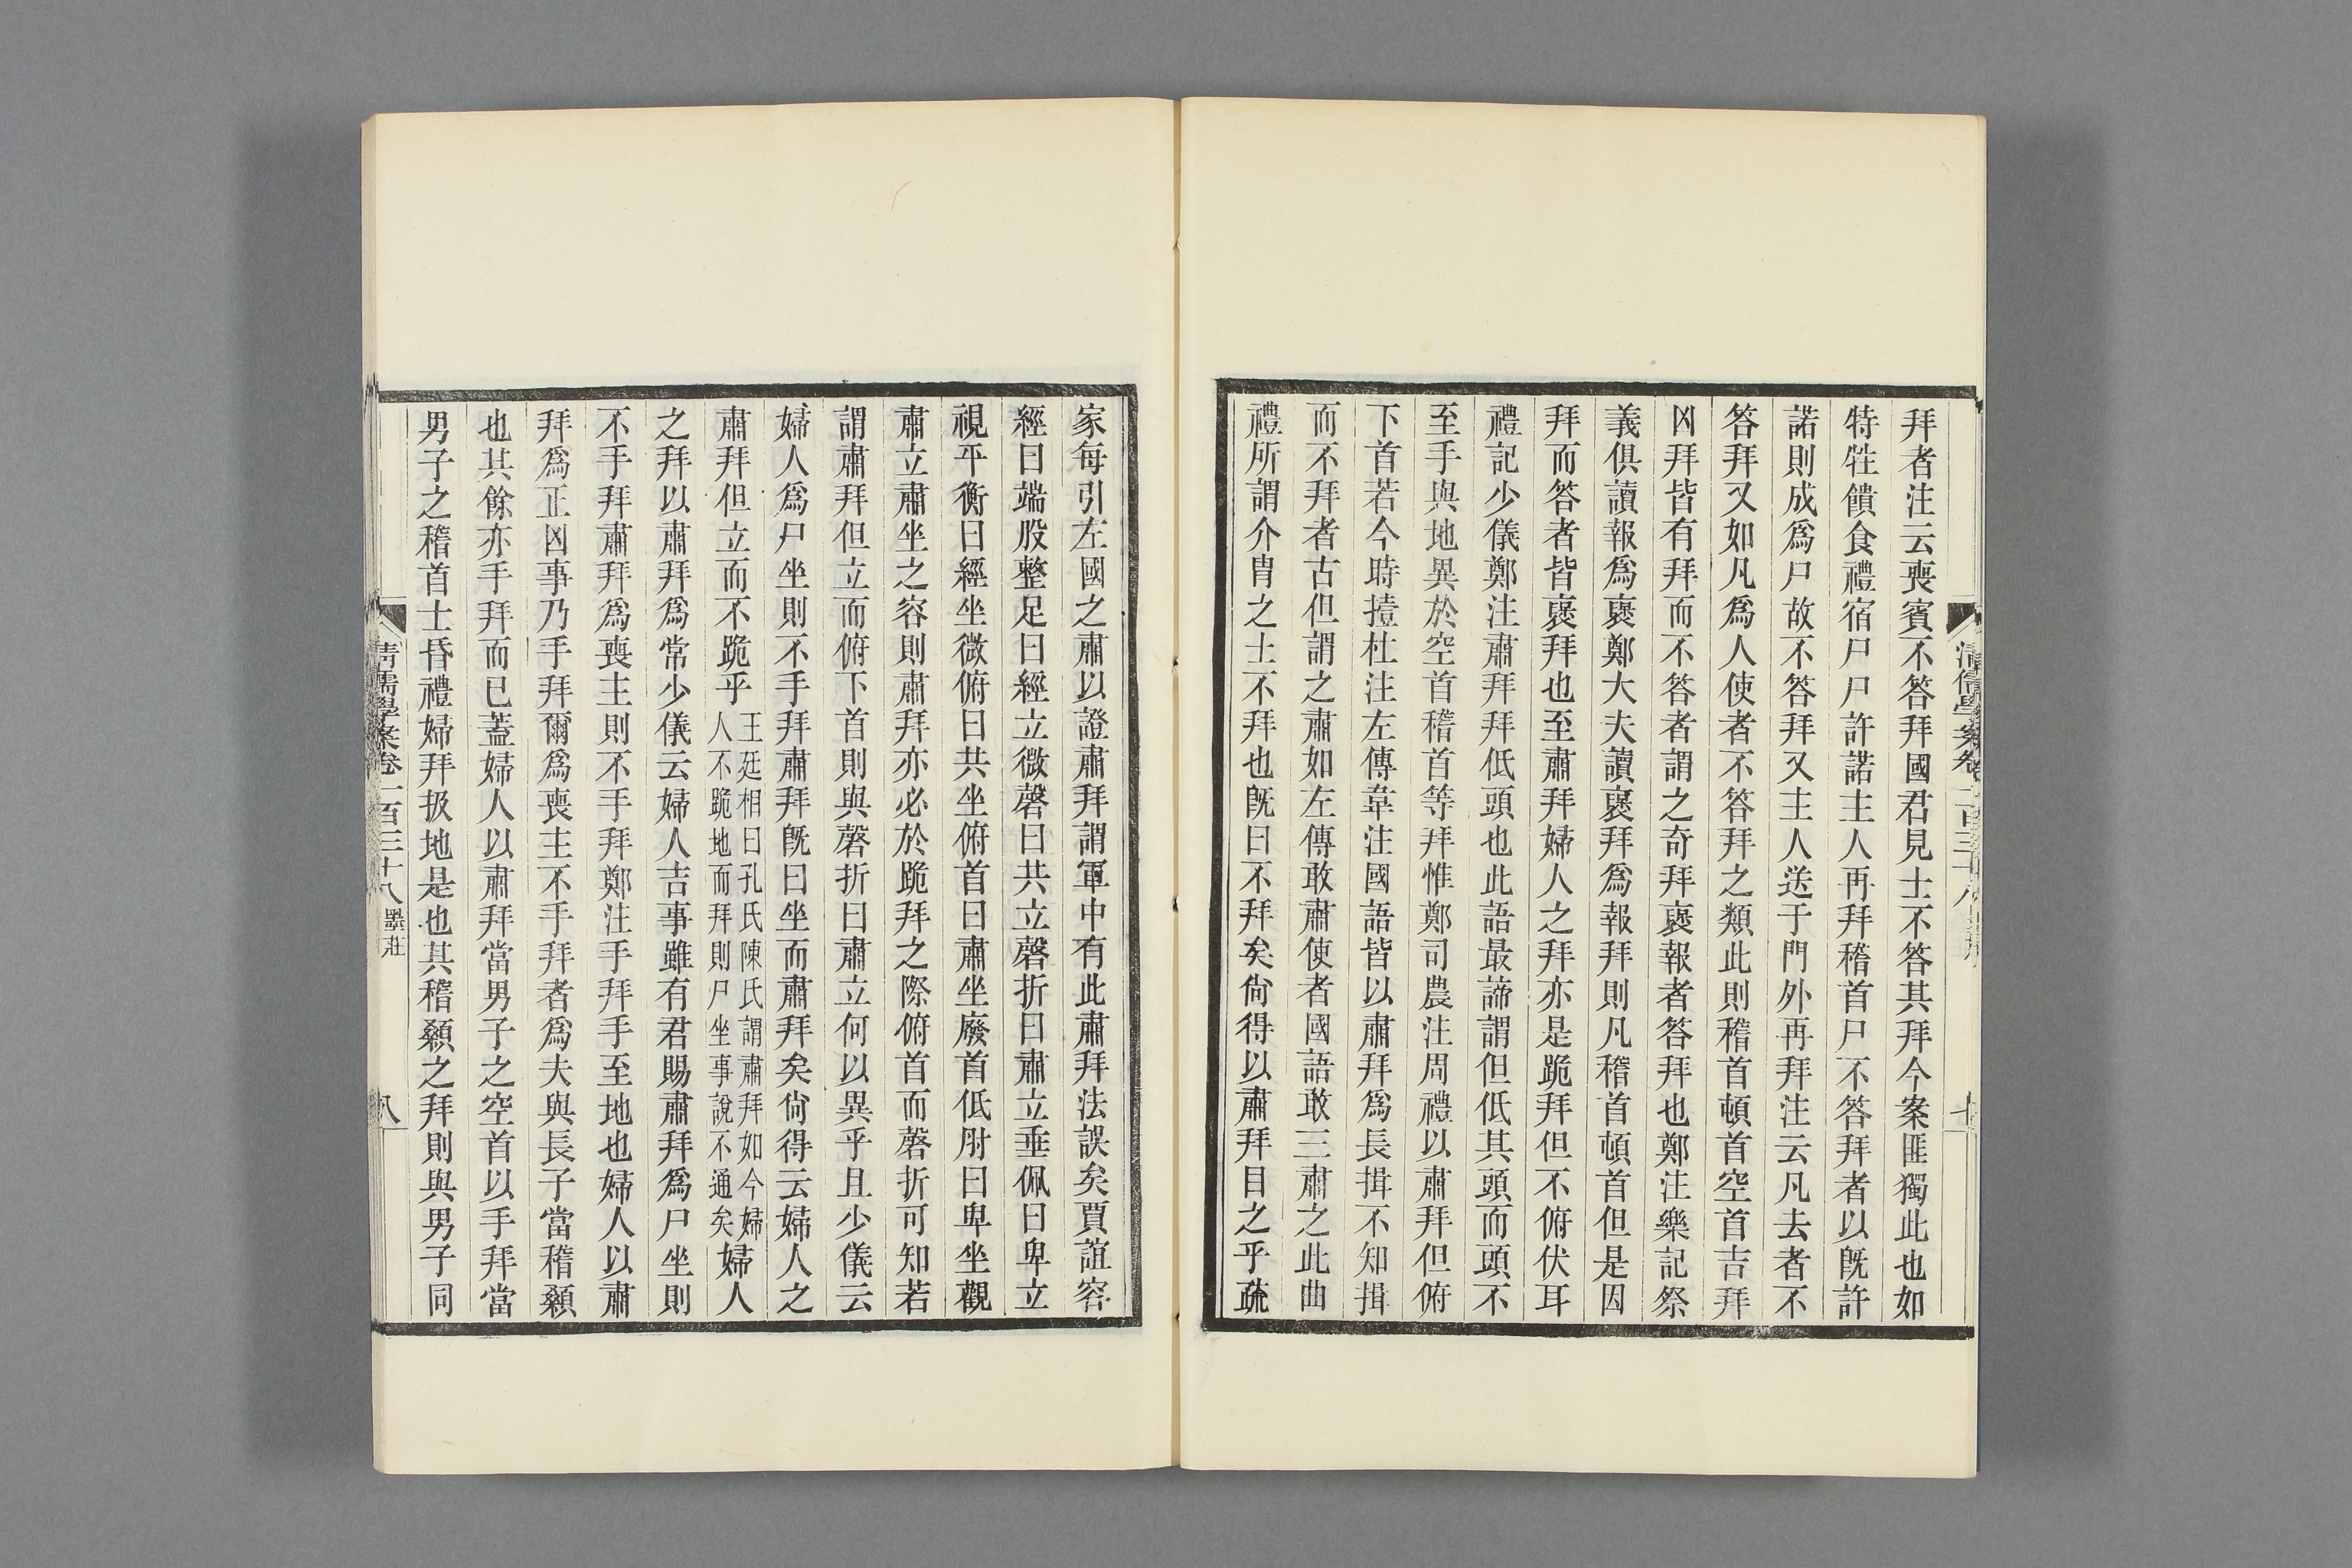 拜者注云喪賓不答拜國君見士不答其拜今案匪獨此也如
特牲饋食禮宿尸尸許諾主人再拜稽首尸不答拜者以旣許
諾則成爲尸故不答拜又主人送于門外再拜注云凡去者不
答拜又如凡爲人使者不答拜之類此則稽首頓首空首吉拜
凶拜皆有拜而不答者謂之奇拜襃報者答拜也鄭注樂記祭
義俱讀報爲襃鄭大夫讀襃拜爲報拜則凡稽首頓首但是因
拜而答者皆襃拜也至肅拜婦人之拜亦是跪拜但不俯伏耳
禮記少儀鄭注肅拜拜低頭也此語最諦謂但低其頭而頭不
至手與地異於空首稽首等拜惟鄭司農注周禮以肅拜但俯
下首若今時撎杜注左傳韋注國語皆以肅拜爲長揖不知揖
而不拜者古但謂之肅如左傳敢肅使者國語敢三肅之此曲
禮所謂介胄之士不拜也旣曰不拜矣尙得以肅拜目之乎疏
清儒學案卷一百三十八
七
家每引左國之肅以證肅拜謂軍中有此肅拜法誤矣賈誼容
經曰端股整足曰經立微磬曰共立磬折曰肅立垂佩曰卑立
視平衡曰經坐微俯曰共坐俯首曰肅坐廢首低肘曰卑坐觀
肅立肅坐之容則肅拜亦必於跪拜之際俯首而磬折可知若
謂肅拜但立而俯下首則與磬折曰肅立何以異乎且少儀云
婦人爲尸坐則不手拜肅拜旣曰坐而肅拜矣尙得云婦人之
肅拜但立而不跪乎王廷相曰孔氏陳氏謂肅拜如今婦人不跪地而拜則尸坐事說不通矣婦人
之拜以肅拜爲常少儀云婦人吉事雖有君賜肅拜爲尸坐則
不手拜肅拜爲喪主則不手拜鄭注手拜手至地也婦人以肅
拜爲正凶事乃手拜爾爲喪主不手拜者爲夫與長子當稽顙
也其餘亦手拜而已蓋婦人以肅拜當男子之空首以手拜當
男子之稽首士昏禮婦拜扱地是也其稽顙之拜則與男子同
清儒學案卷一百三十八 墨莊
八